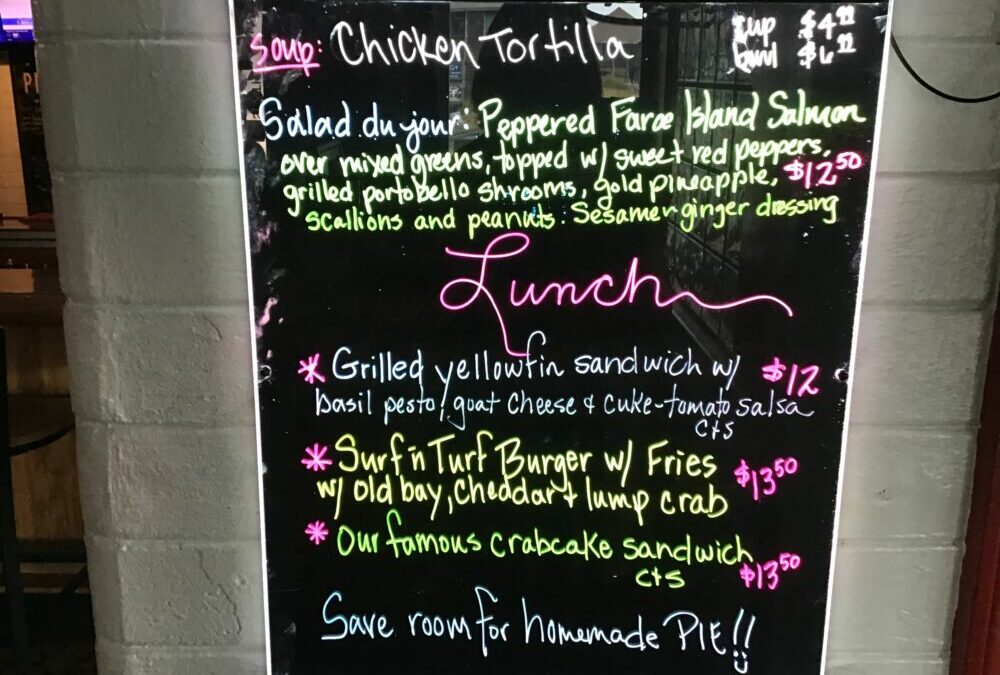 Soup: Chicken Tortilla cup $4.99
bowl $6.99
Salad du jour: Peppered Faroe Island Salmon
over mixed greens, topped w/ sweet red peppers,
grilled portobello shrooms, gold pineapple, $12.50
scallions and peanuts. Sesame ginger dressing
Lunch
* Grilled yellowfin sandwich w/ $12
basil pesto, goat cheese & cuke-tomato salsa
cts
* Surf n Turf Burger w/ Fries
w/ old bay, cheddar + lump crab $13.50
* Our famous crabcake sandwich
cts $13.50
Save room for homemade PIE!!